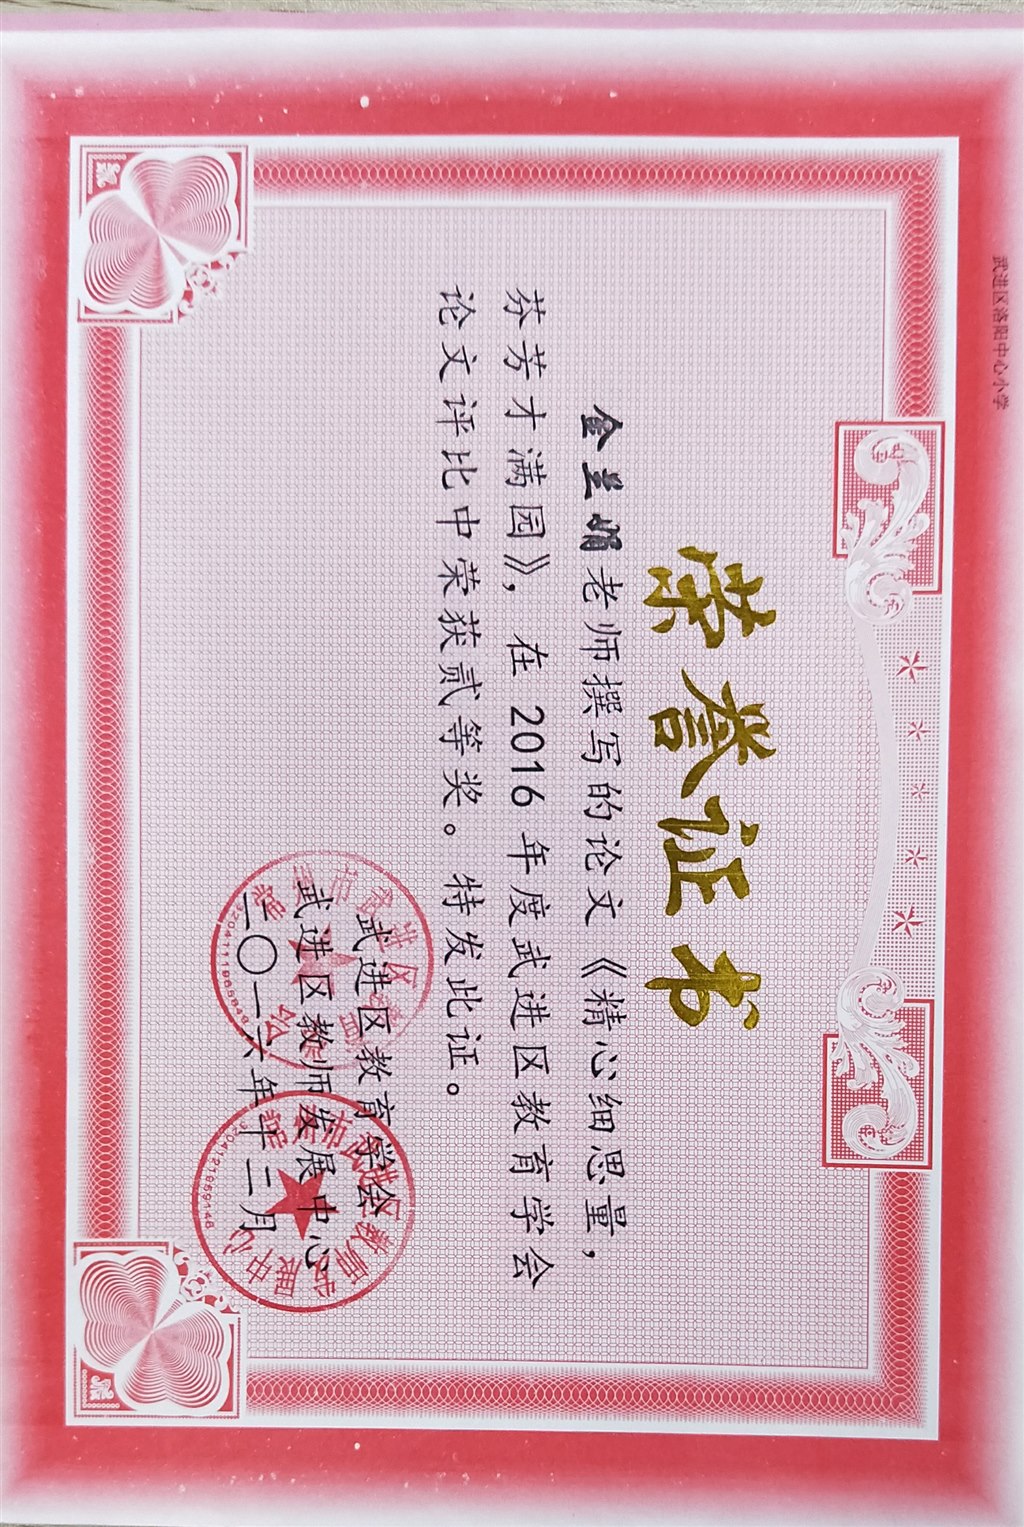 武进区洛阳中心小学
荣誉证书
金兰娟老师撰写的论文《精心细思量，
芬芳才满园》，在2016年度武进区教育学会
论文评比中荣获贰等奖。特发此证。
武进区教育学会
武进区教师发展中心
二〇一六年十二月